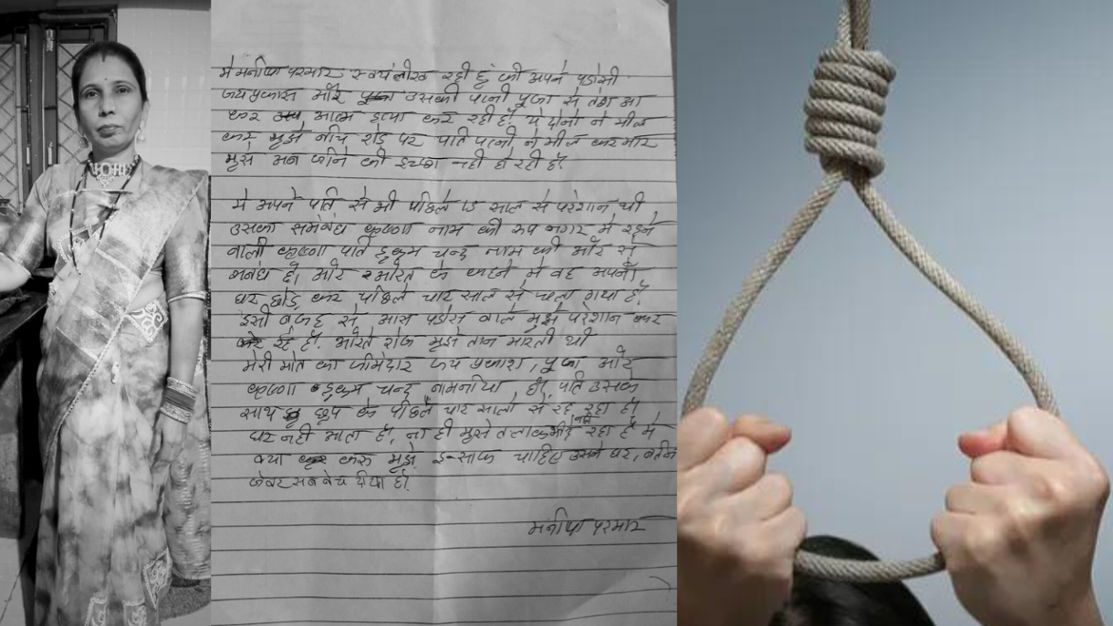 मे मनीषा परमार स्वयं लीख रही हुं की अपने पडोसी
जयप्रकास और उसकी पत्नी पूजा से तंग आ
कर आत्म हत्या कर रही हैं, ये दोनो ने मील
कर मुझे नीचे रोड पर पति पत्नी ने मील कर मार
मुझे अब जीने की इच्छा नही हो रही है।
मे अपने पति से भी पिछले 15 साल से परेशान थी
उसका कृष्णा नाम की रुप नगर मे रहने
वाली कृष्णा पति हुकम चन्द नाम की औरत से
है, और के कहने मे वह अपना
घर छोड कर पिछले चार साल से चला गया है,
इसी वजह से आस पडोस वाले मुझे परेशान कर
रहे हैं, औरते रोज मुझे ताने मारती थी
मेरी मौत का जीमेदार जय प्रकाश, पूजा और
कृष्णा हुकम चन्द हैं, पति उसके
साथ छुप के पिछले चार सालो से रह रहा हैं
घर नही आता हैं, ना ही मुझे तलाक नही रहा है मे
क्या करु मुझे इन्साफ चाहिए उसने घर,
जेवर सब बेच दीया है।
मनीषा परमार